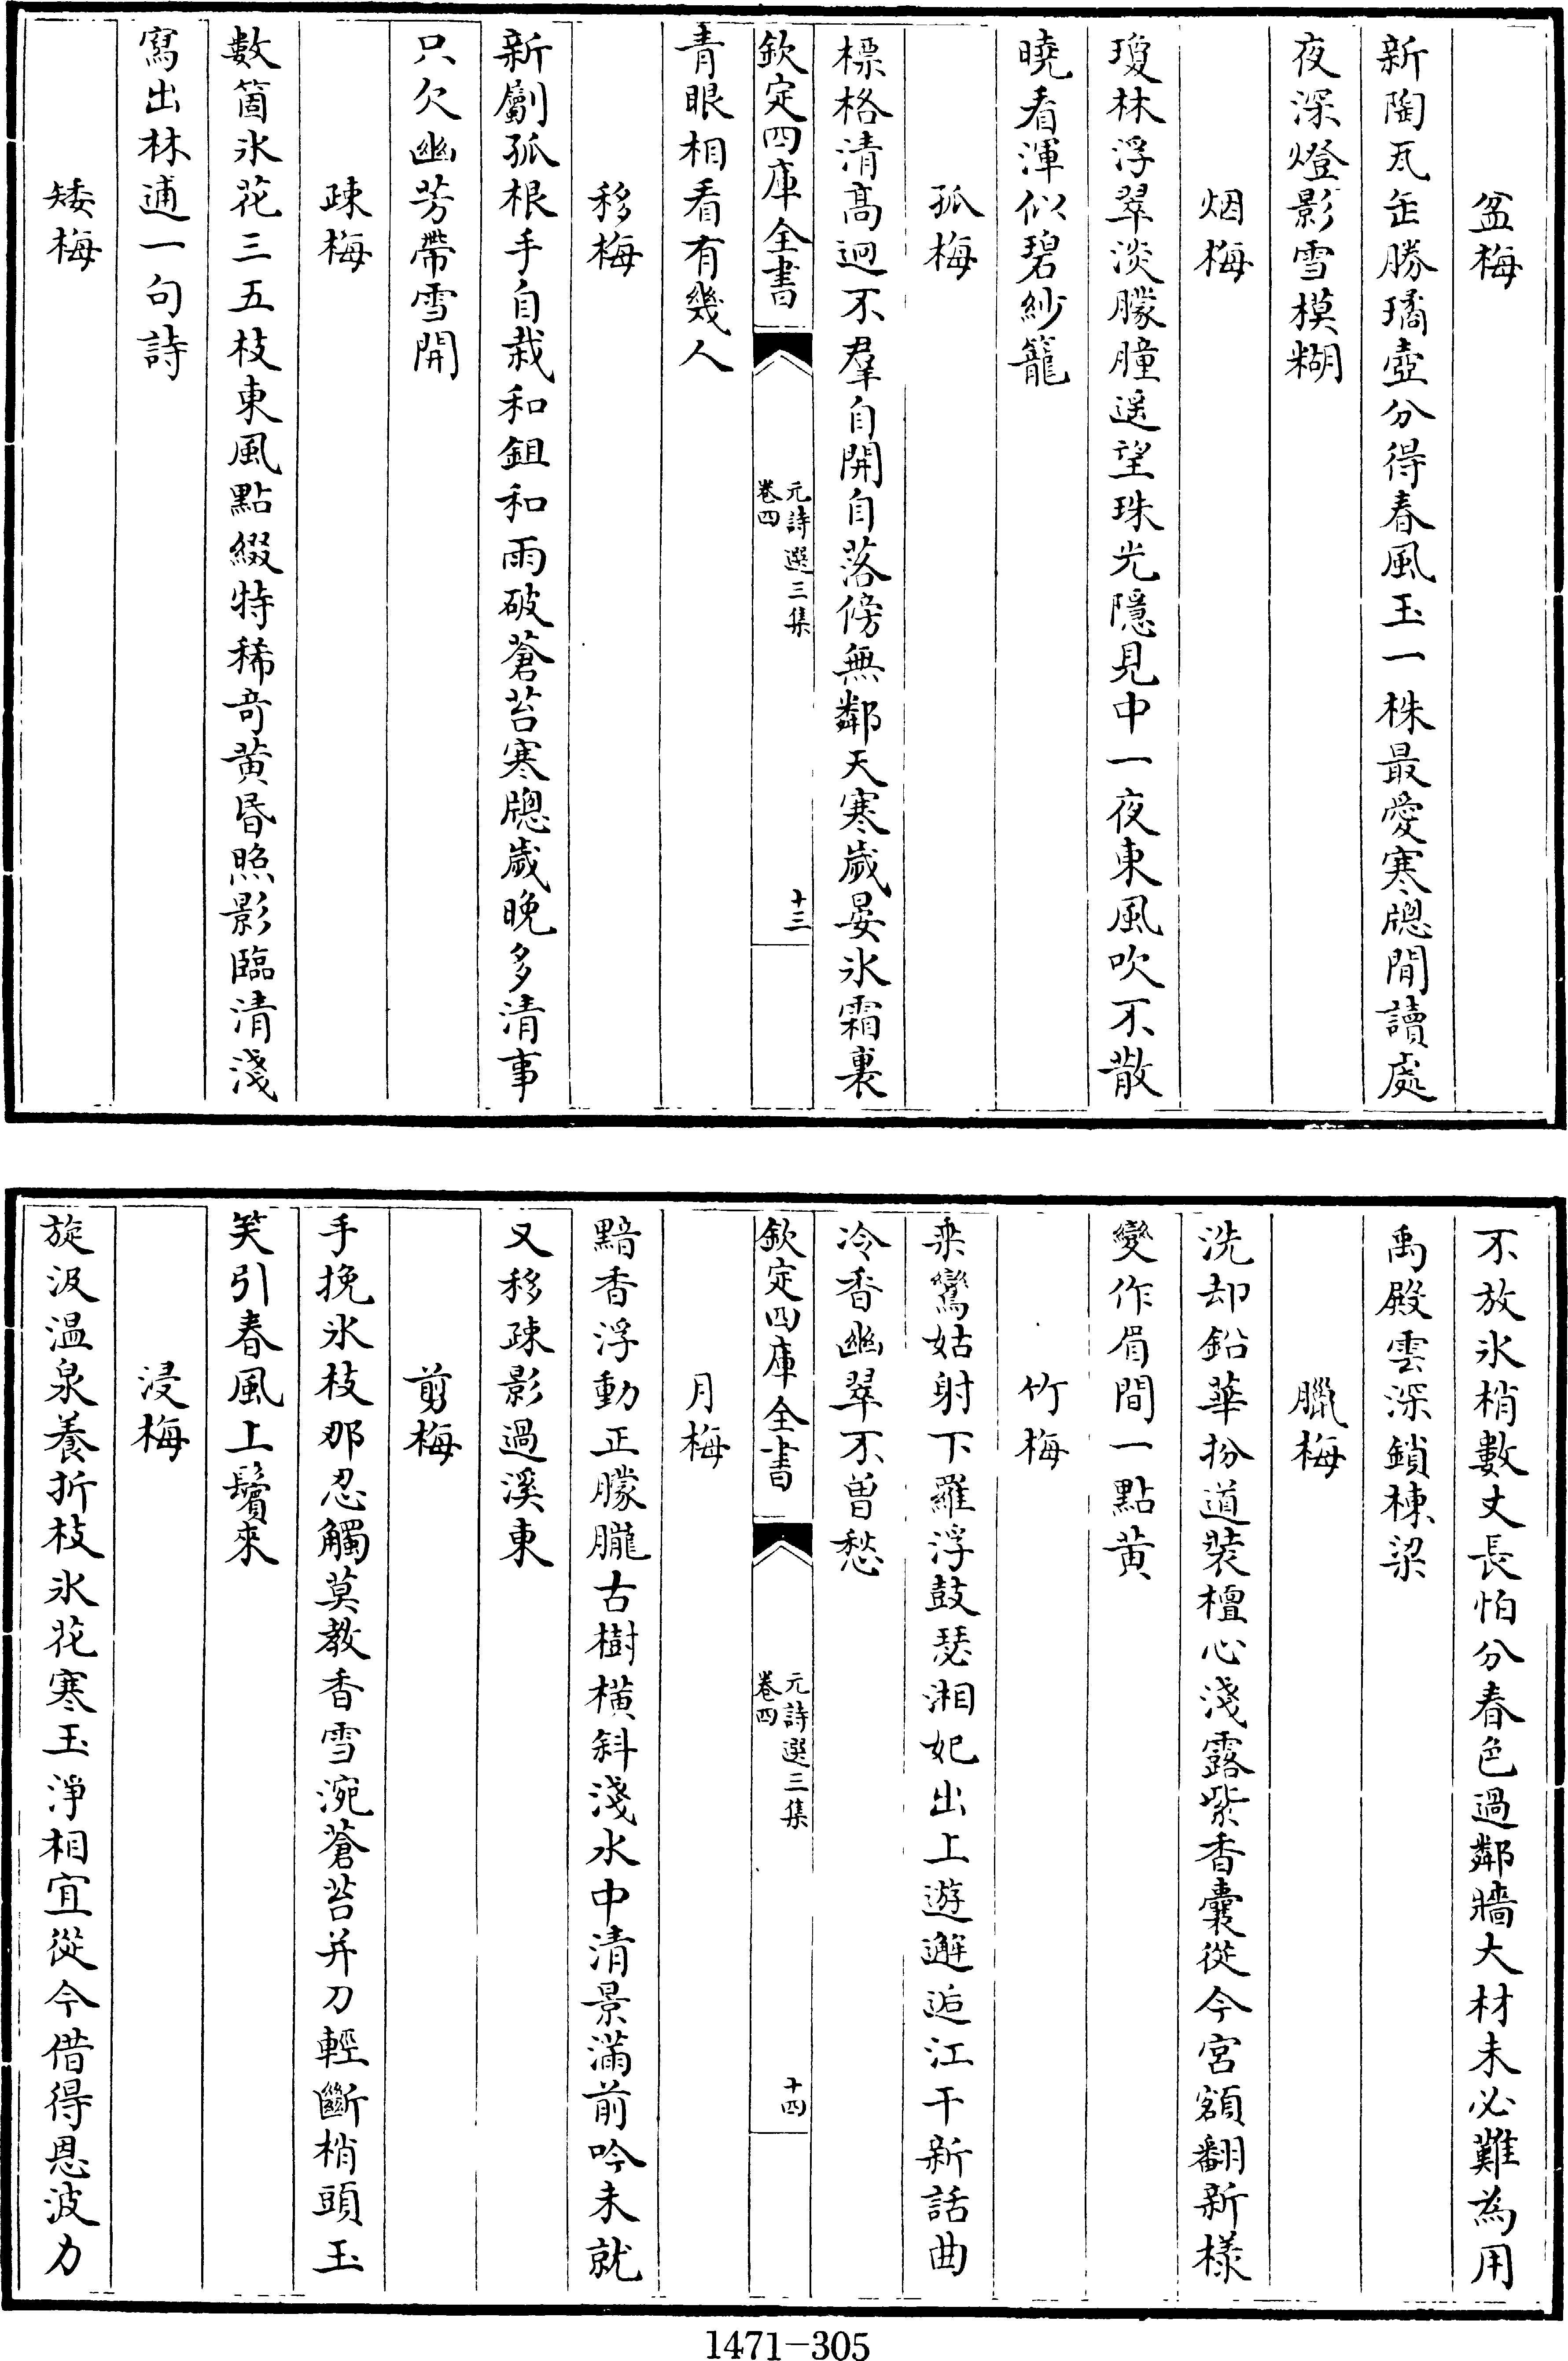 盆梅
新陶瓦缶勝璚壺分得春風玉一株最愛寒牕閒讀處
夜深燈影雪模糊
烟梅
瓊林浮翠淡朦朣遥望珠光隱見中一夜東風吹不散
曉看渾似碧紗籠
孤梅
標格清高迥不羣自開自落傍無鄰天寒歲晏氷霜裏
欽定四庫全書
元詩選三集
卷四
十三
青眼相看有幾人
移梅
新劚孤根手自栽和鉏和雨破蒼苔寒牕歲晚多清事
只欠幽芳帶雪開
疎梅
數箇氷花三五枝東風點綴特稀奇黄昏照影臨清淺
寫出林逋一句詩
矮梅
不放氷梢數丈長怕分春色過鄰牆大材未必難為用
禹殿雲深鎖棟梁
臘梅
洗却鉛華扮道裝檀心淺露紫香囊從今宮額翻新樣
變作眉間一點黄
竹梅
乘鸞姑射下羅浮鼓瑟湘妃出上遊邂逅江干新話曲
冷香幽翠不曾愁
欽定四庫全書
元詩選三集
卷四
十四
月梅
黯香浮動正朦朧古樹橫斜淺水中清景滿前吟未就
又移疎影過溪東
剪梅
手挽氷枝那忍觸莫教香雪涴蒼苔并刀輕斷梢頭玉
笑引春風上鬢來
浸梅
旋汲温泉養折枝氷花寒玉淨相宜從今借得恩波力
1471-305